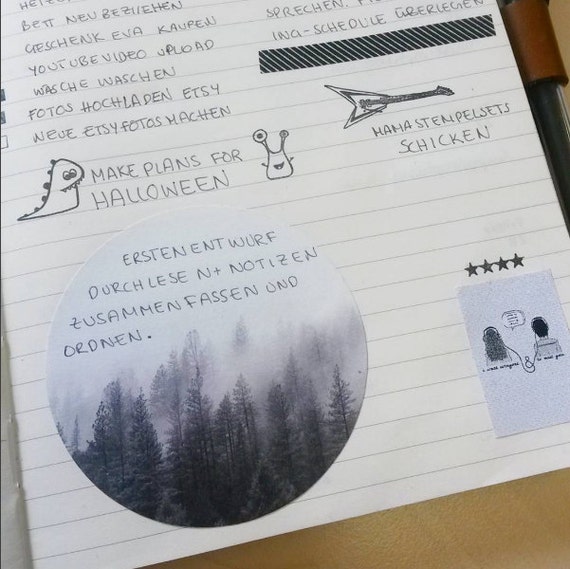 BETT NEU BEZIEHEN
GESCHENK EVA KAUFEN
YOUTUBEVIDEO UPLOAD
WÄSCHE WASCHEN
FOTOS HOCHLADEN ETSY
NEUE ETSYFOTOS MACHEN
MAKE PLANS FOR
HALLOWEEN
SPRECHEN.
INQ-SCHEDULE ÜBERLEGEN
MAMA STEMPELSETS
SCHICKEN
ERSTEN ENTWURF
DURCHLESEN + NOTIZEN
ZUSAMMENFASSEN UND
ORDNEN.
&